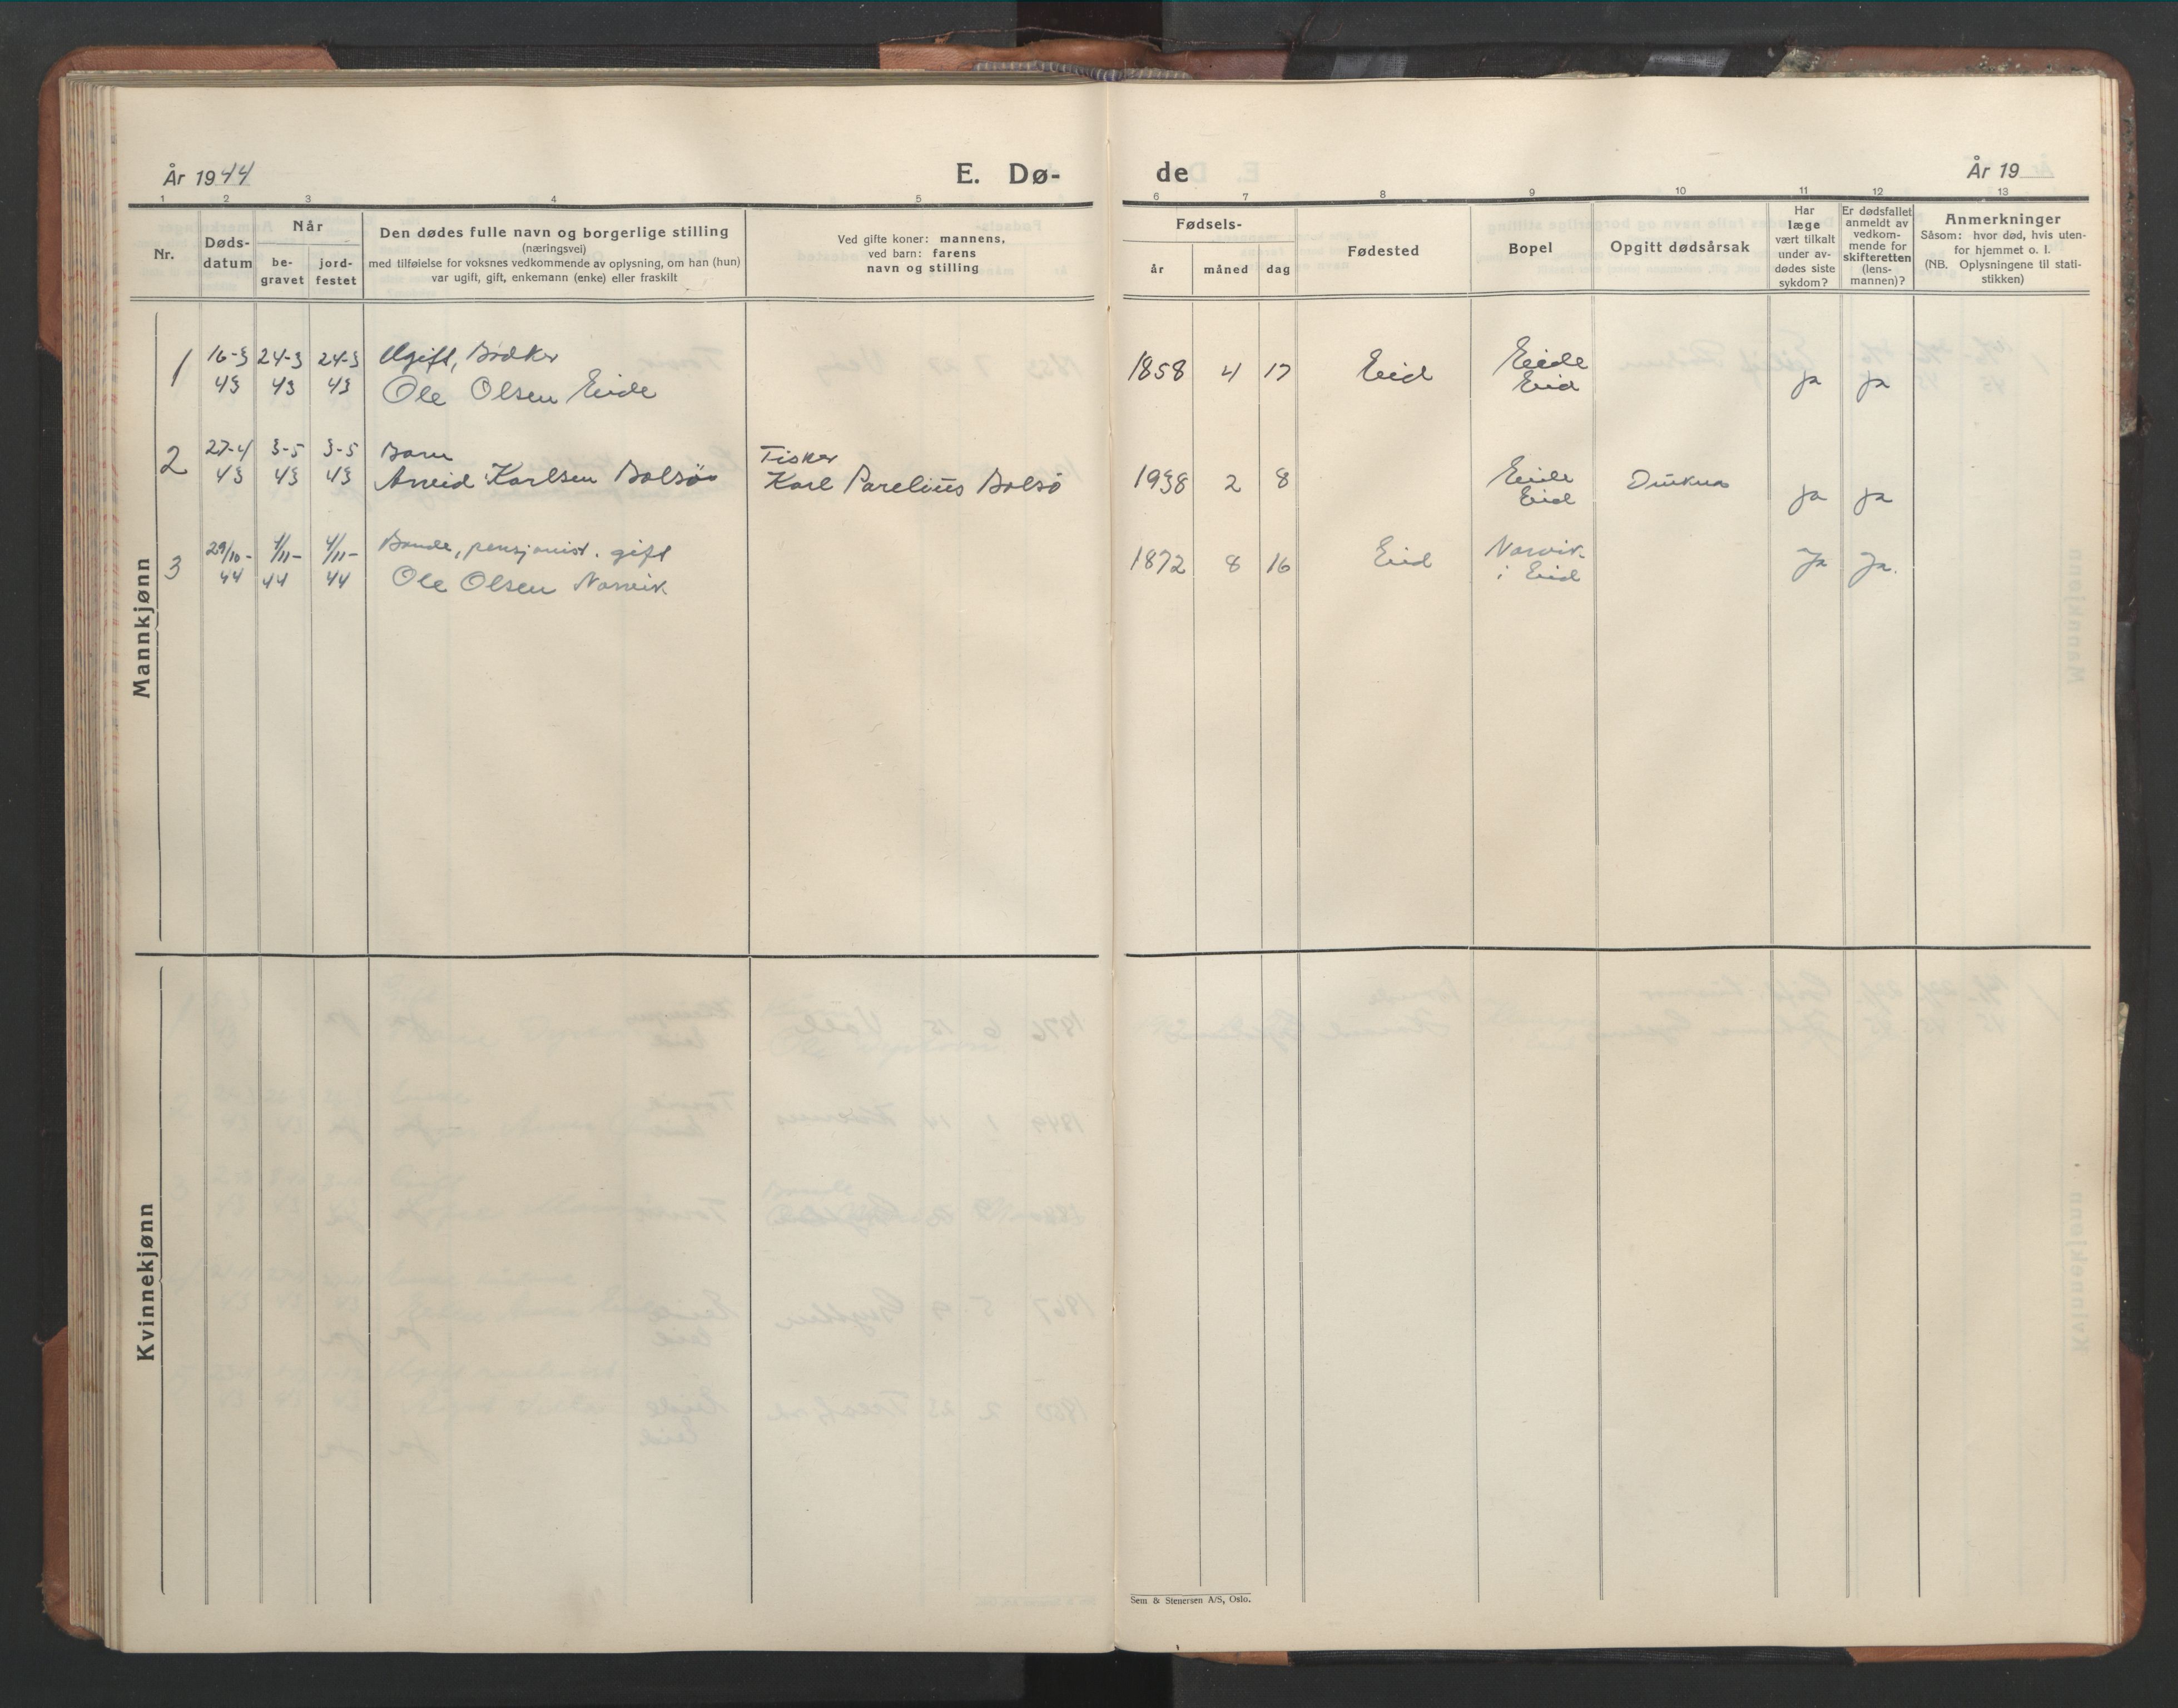 År 1944
E. Dø-
de
År 19
1 2 3 4 5 6 7 8 9 10 11 12 13
Nr.
Døds-
datum
Når
be-
gravet
jord-
festet
Den dødes fulle navn og borgerlige stilling
(næringsvei)
med tilføielse for voksnes vedkommende av oplysning, om han (hun)
var ugift, gift, enkemann (enke) eller fraskilt
Ved gifte koner: mannens,
ved barn: farens
navn og stilling
Fødsels-
år
måned
dag
Fødested
Bopel
Opgitt dødsårsak
Har
læge
vært tilkalt
under av-
dødes siste
sykdom?
Er dødsfallet
anmeldt av
vedkom-
mende for
skifteretten
(lens-
mannen)?
Anmerkninger
Såsom: hvor død, hvis uten-
for hjemmet o. l.
(NB. Oplysningene til stati-
stikken)
Mannkjønn
1 16-3 24-3 24-3 Ugift, Bødker
43 43 43 Ole Olsen Eide
1858 4 17 Eid Eide
Eid ja ja
2 27-4 3-5 3-5 Barn Fisker
43 43 43 Arvid Karlsen Bolsø Karl Parelius Bolsø
1938 2 8 Eide
Eid ja ja
3 29/10- 4/11- 4/11- Bonde, pensjonist. gift
44 44 44 Ole Olsen Norvik
1872 8 16 Eid Norvik
i Eid Ja Ja.
Kvinnekjønn
Sem & Stenersen A/S, Oslo.